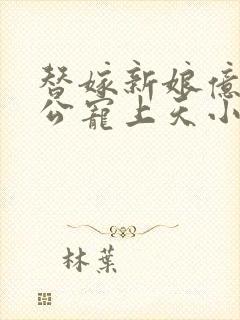 替嫁新娘億
公寵上天小
林葉